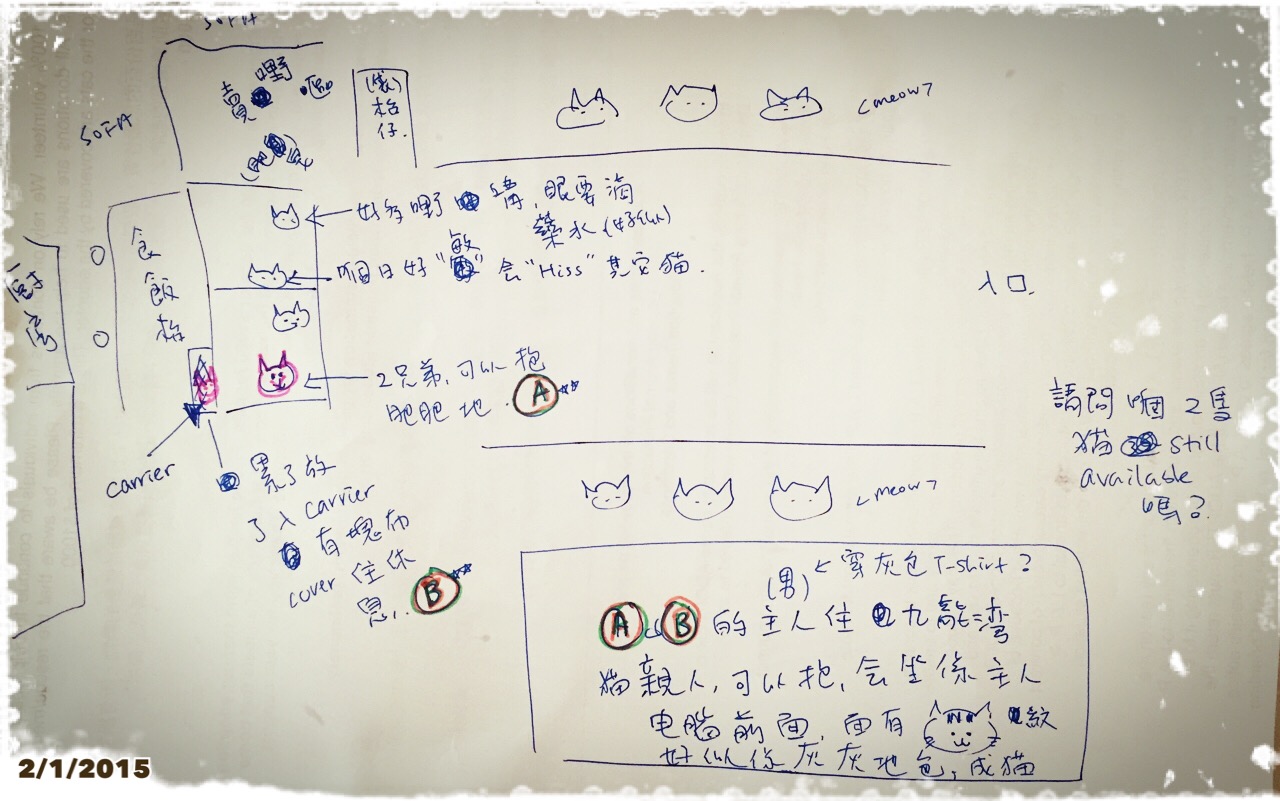 SOFA
SOFA
賣嘢
嘅
(肥
(後)
枱
仔.
<meow>
好多嘢講, 眼要滴
藥水 (好似)
嗰日好"敏" 会"Hiss" 其它猫.
食
飯
枱
厨
房
入口.
2兄弟, 可以抱
肥肥地. A
carrier
累了放
了入 carrier
有塊布
cover 住休
息.. B
請問嗰2隻
猫 still
available
嗎?
<meow>
(男) < 穿灰色T-shirt?
A B 的主人住九龍湾
猫親人, 可以抱, 会坐係主人
电腦前面, 面有 紋
好似係灰灰地色, 成猫
2/1/2015